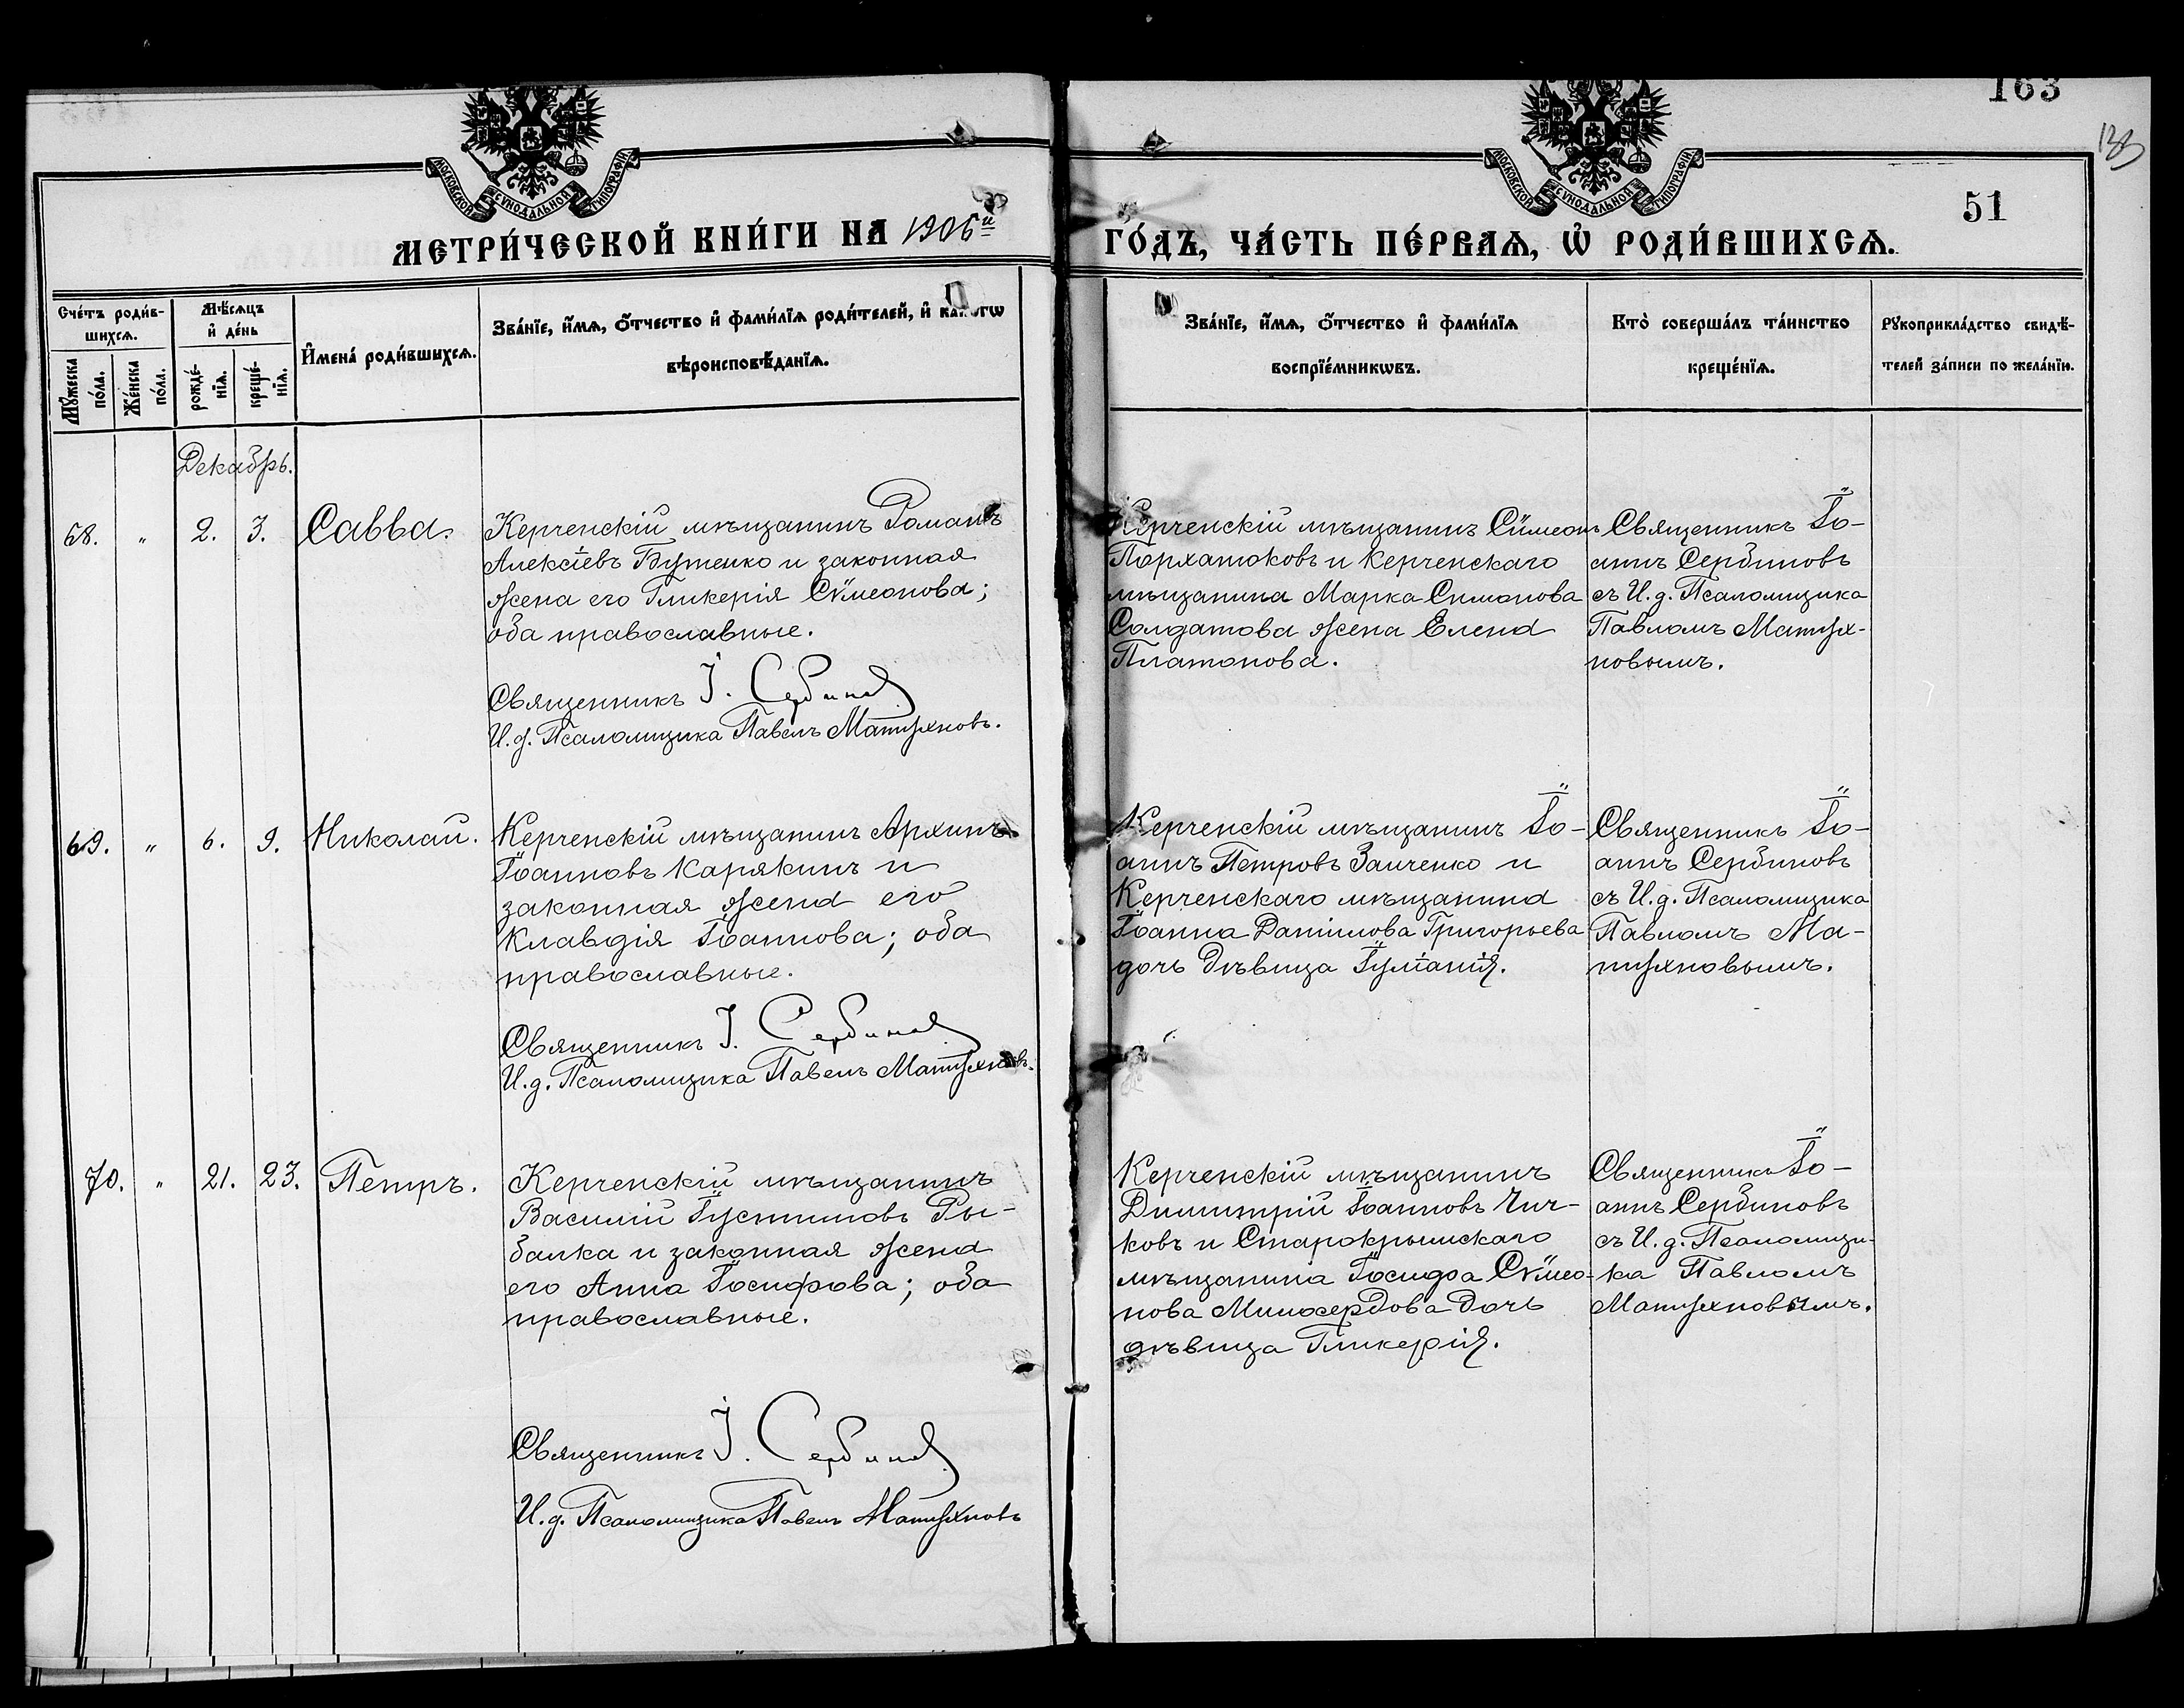 163
133
51
МОСКОВСКОЙ СѴНОДАЛЬНОЙ ТИПОГРАФІИ
МОСКОВСКОЙ СѴНОДАЛЬНОЙ ТИПОГРАФІИ
МЕТРИ́ЧЕСКОЙ КНИ́ГИ НА 1906й
ГО́ДЪ, ЧА́СТЬ ПЕ́РВАѦ, Ѡ҆ РОДИ́ВШИХСѦ.
Сче́тъ роди́в-
шихсѧ.
Мѣ́сѧцъ
и҆ де́нь
Мꙋ́жеска
по́ла.
Же́нска
по́ла.
рожде́-
нїѧ.
креще́-
нїѧ.
И҆мена̀ роди́вшихсѧ.
Зва́нїе, и҆́мѧ, ѻ҆́тчество и҆ фами́лїѧ роди́телей, и҆ како́гѡ
вѣроисповѣ́данїѧ.
Зва́нїе, и҆́мѧ, ѻ҆́тчество и҆ фами́лїѧ
воспрїе́мникѡвъ.
Кто̀ соверша́лъ та́инство
креще́нїѧ.
Рꙋкоприкла́дство свидѣ́-
телей за́писи по жела́нїю.
Декабрь.
68. " 2. 3. Савва.
Керченскій мѣщанинъ Романъ
Алексіевъ Бутенко и законная
жена его Гликерія Сѵмеонова;
оба православные.
Священникъ І. Сербиновъ
И.д. Псаломщика Павелъ Матужновъ.
Керченскій мѣщанинъ Сѵмеонъ
Порхатюковъ и Керченскаго
мѣщанина Марка Симонова
Солдатова жена Елена
Платонова.
Священникъ Іо-
аннъ Сербиновъ
съ И.д. Псаломщика
Павломъ Матуж-
новымъ.
69. " 6. 9. Николай.
Керченскій мѣщанинъ Архипъ
Іоанновъ Карякинъ и
законная жена его
Клавдія Іоаннова; оба
православные.
Священникъ І. Сербиновъ
И.д. Псаломщика Павелъ Матужновъ.
Керченскій мѣщанинъ Іо-
аннъ Петровъ Заиченко и
Керченскаго мѣщанина
Іоанна Даніилова Григорьева
дочь дѣвица Іуліанія.
Священникъ Іо-
аннъ Сербиновъ
съ И.д. Псаломщика
Павломъ Ма-
тужновымъ.
70. " 21. 23. Петръ.
Керченскій мѣщанинъ
Василій Іустиновъ Ры-
балка и законная жена
его Анна Іосифова; оба
православные.
Священникъ І. Сербиновъ
И.д. Псаломщика Павелъ Матужновъ
Керченскій мѣщанинъ
Димитрій Іоанновъ Чич-
ковъ и Старокрымскаго
мѣщанина Іосифа Сѵмео-
нова Милосердова дочь
дѣвица Гликерія.
Священникъ Іо-
аннъ Сербиновъ
съ И.д. Псаломщи-
ка Павломъ
Матужновымъ.